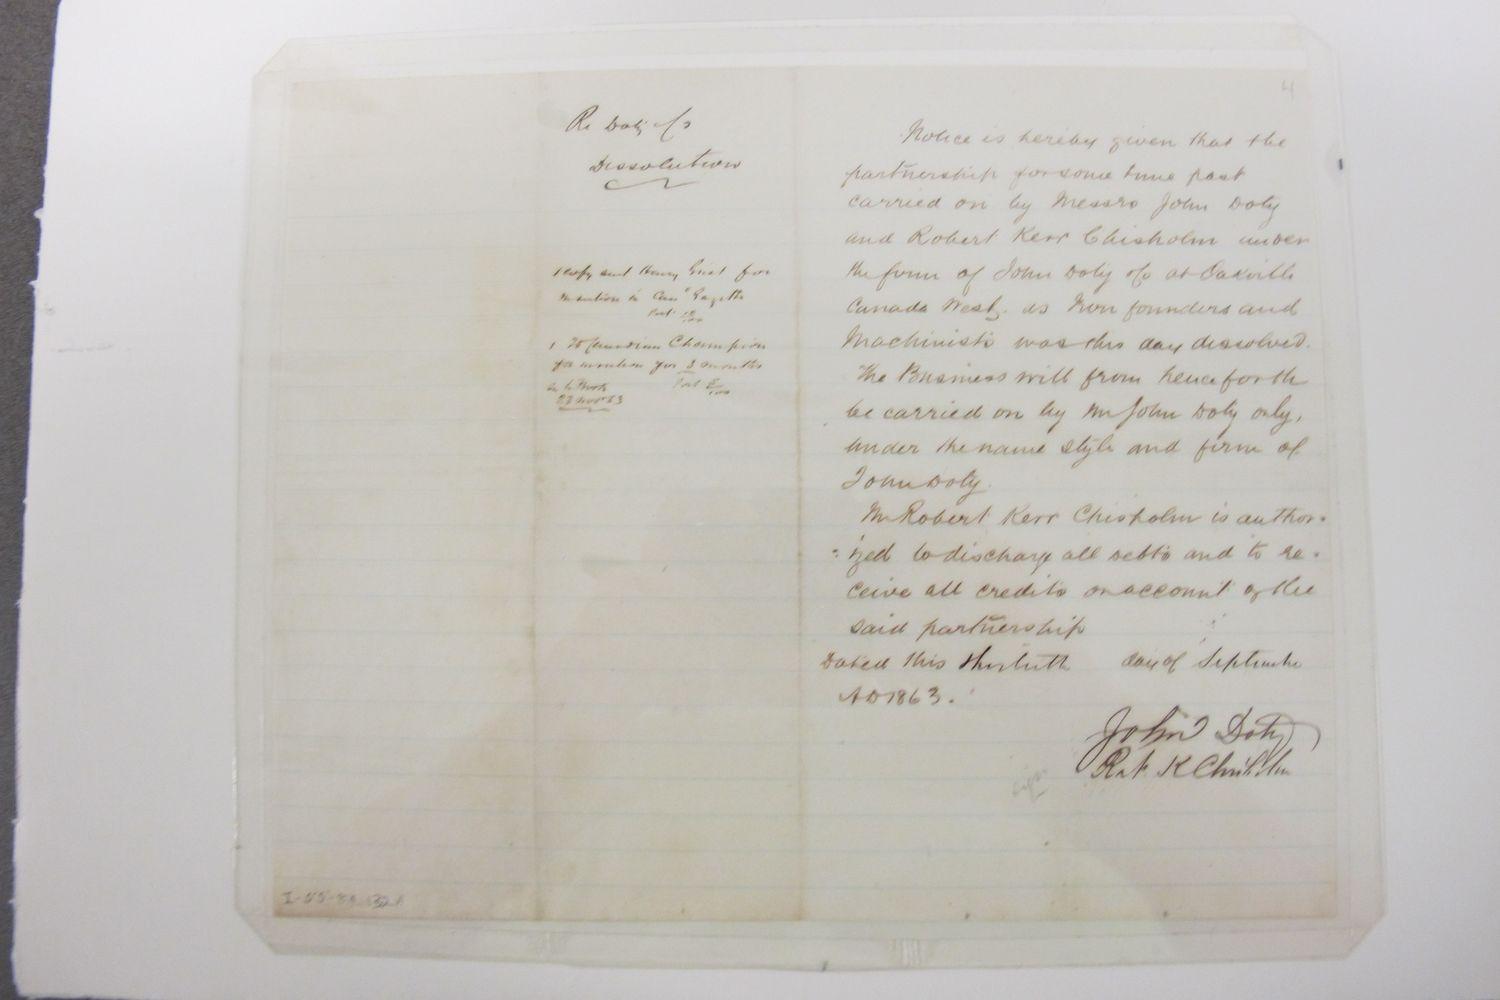 Re Doty & Co
Dissolution
1 copy sent Henry Grist for
insertion in Can Gazette
1 To Canadian Champion
for insertion for 3 months
4
Notice is hereby given that the
partnership for some time past
carried on by Messrs John Doty
and Robert Kerr Chisholm under
the firm of John Doty & Co at Oakville
Canada West, as Iron founders and
Machinists was this day dissolved.
The Business will from henceforth
be carried on by Mr John Doty only,
under the name style and firm of
John Doty.
Mr Robert Kerr Chisholm is author-
ized to discharge all debts and to re-
ceive all credits on account of the
said partnership
Dated this day of September
AD 1863.
John Doty
Robt K Chisholm